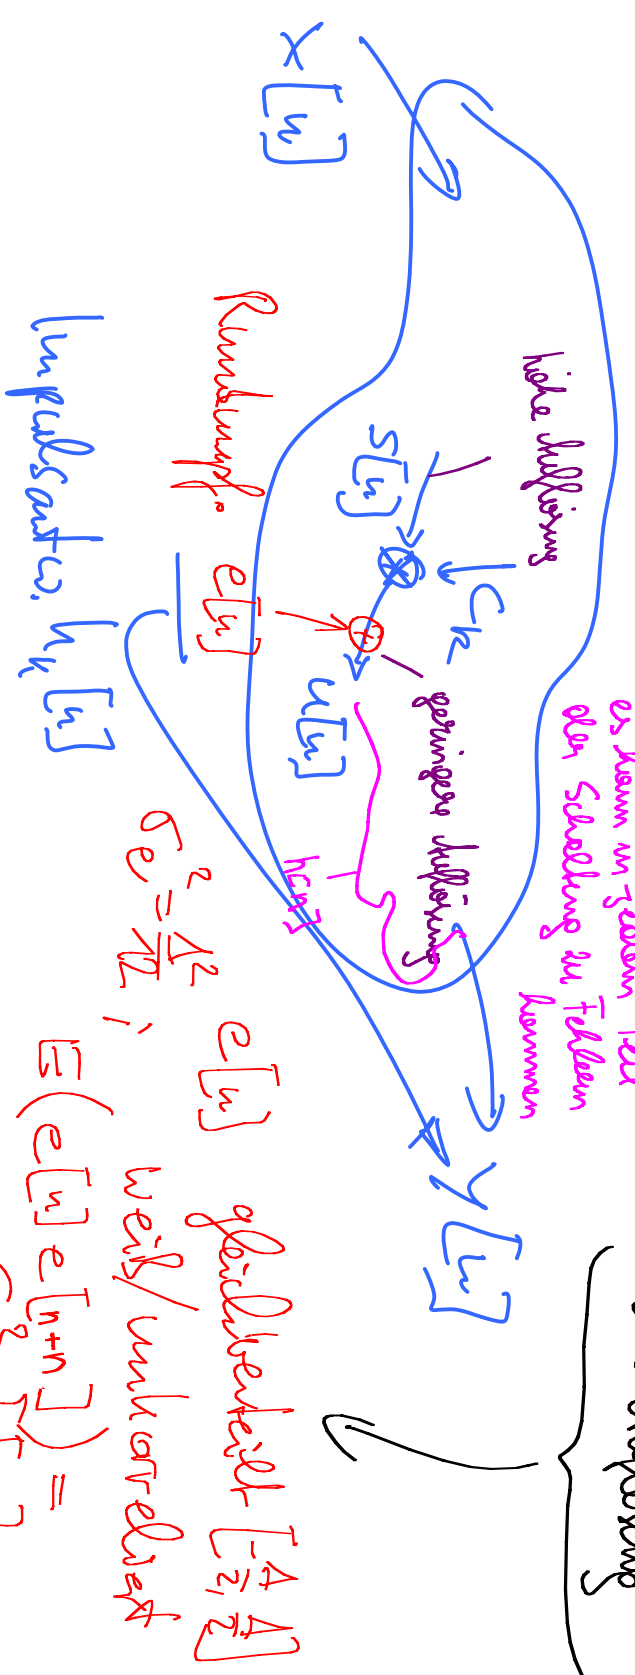 es kann in jedem Teil
der Schaltung zu Fehlern
kommen
hohe Auflösung
x[n]
s[n]
c_k
geringere Auflösung
u[n]
h[n]
y[n]
Rundempf.
e[n]
Impulsantw. h_k[n]
e[n] gleichverteilt [-Δ/2, Δ/2]
σ_e² = Δ²/12, weiß/unkorreliert
E(e[n] e[n+m]) =